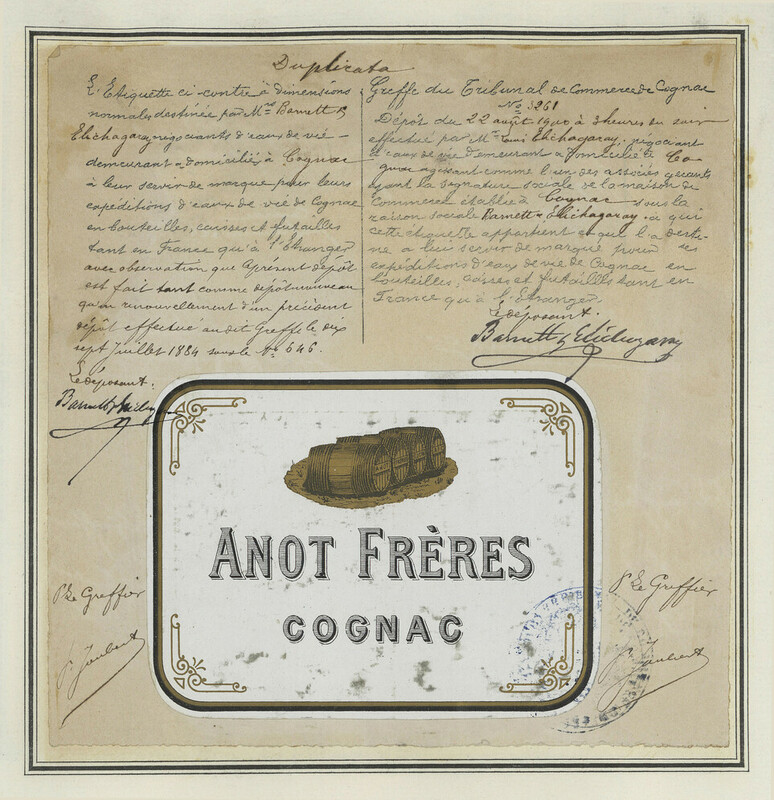 Duplicata
L'Etiquette ci-contre à dimensions
normales destinée par Mrs Barnett &
Elichagaray négociants d'eaux de vie
demeurant & domiciliés à Cognac
à leur servir de marque pour leurs
expéditions d'eaux de vie de Cognac
en bouteilles, caisses et futailles
tant en France qu'à l'Etranger
avec observation que le présent dépôt
est fait tant comme dépôt nouveau
qu'en renouvellement d'un précédent
dépôt effectué au dit Greffe le dix
sept Juillet 1884 sous le No 646.
Le déposant.
Barnett & Elichagaray
Greffe du Tribunal de Commerce de Cognac
No 3261
Dépôt du 22 août 1900 à 3 heures du soir
effectué par Mr Louis Elichagaray, négociant
d'eaux de vie demeurant & domicilié à Co-
gnac agissant comme l'un des associés gérants
ayant la signature sociale de la maison de
Commerce établie à Cognac sous la
raison sociale Barnett & Elichagaray à qui
cette étiquette appartient et qui l'a desti-
née à lui servir de marque pour ses
expéditions d'eaux de vie de Cognac en
bouteilles, caisses et futailles tant en
France qu'à l'Etranger
Le déposant.
Barnett & Elichagaray
ANOT FRÈRES
COGNAC
Pr Le Greffier
Joubert
Pr Le Greffier
Joubert